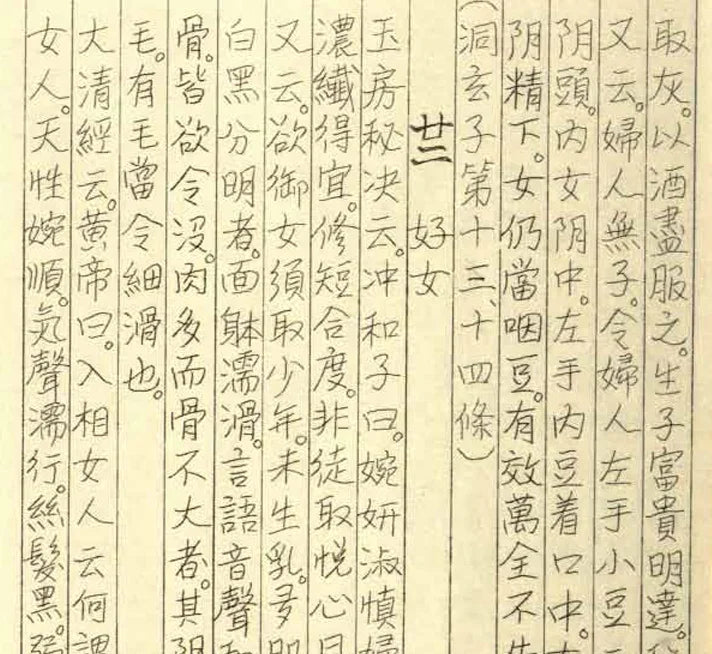 取灰。以酒盡服之。生子富貴明達。
又云。婦人無子。令婦人左手小豆二
阴頭。内女阴中。左手内豆着口中。
阴精下。女仍當咽豆。有效萬全不失
(洞玄子第十三、十四條)
廿二 好女
玉房秘决云。冲和子曰。婉妍淑慎婦
濃纖得宜。修短合度。非徒取悦心目
又云。欲御女須取少年。未生乳。多肌
白黑分明者。面躰濡滑。言語音聲和
骨。皆欲令没。肉多而骨不大者。其阴
毛。有毛當令細滑也。
大清經云。黄帝曰。入相女人云何謂
女人。天性婉順。気聲濡行。絲髮黑。弱